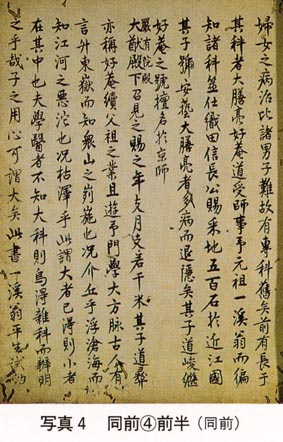 婦女之病治比諸男子難故有專科舊矣前有長于
其科者大膳亮好庵道受師事于元祖一溪翁而偏
知諸科並仕織田信長公賜采地五百石於近江國
其子號安藝大膳亮者多病而退隱矣其子道峻繼
好庵之號擅名於京師
嚴有院殿
大猷殿下召見之賜之年支月支若干米其子道尋
亦稱好庵續父祖之業且遊予門學大方脉古人有
言升東嶽而知衆山之峛崺也况介丘乎浮滄海而
知江河之惡沱也况枯澤乎此謂大者已得則小者
在其中也夫學醫者不知大科則烏得雜科而辨明
之乎哉子之用心可謂大矣此書一溪翁平生
写真4 同前④前半(同前)